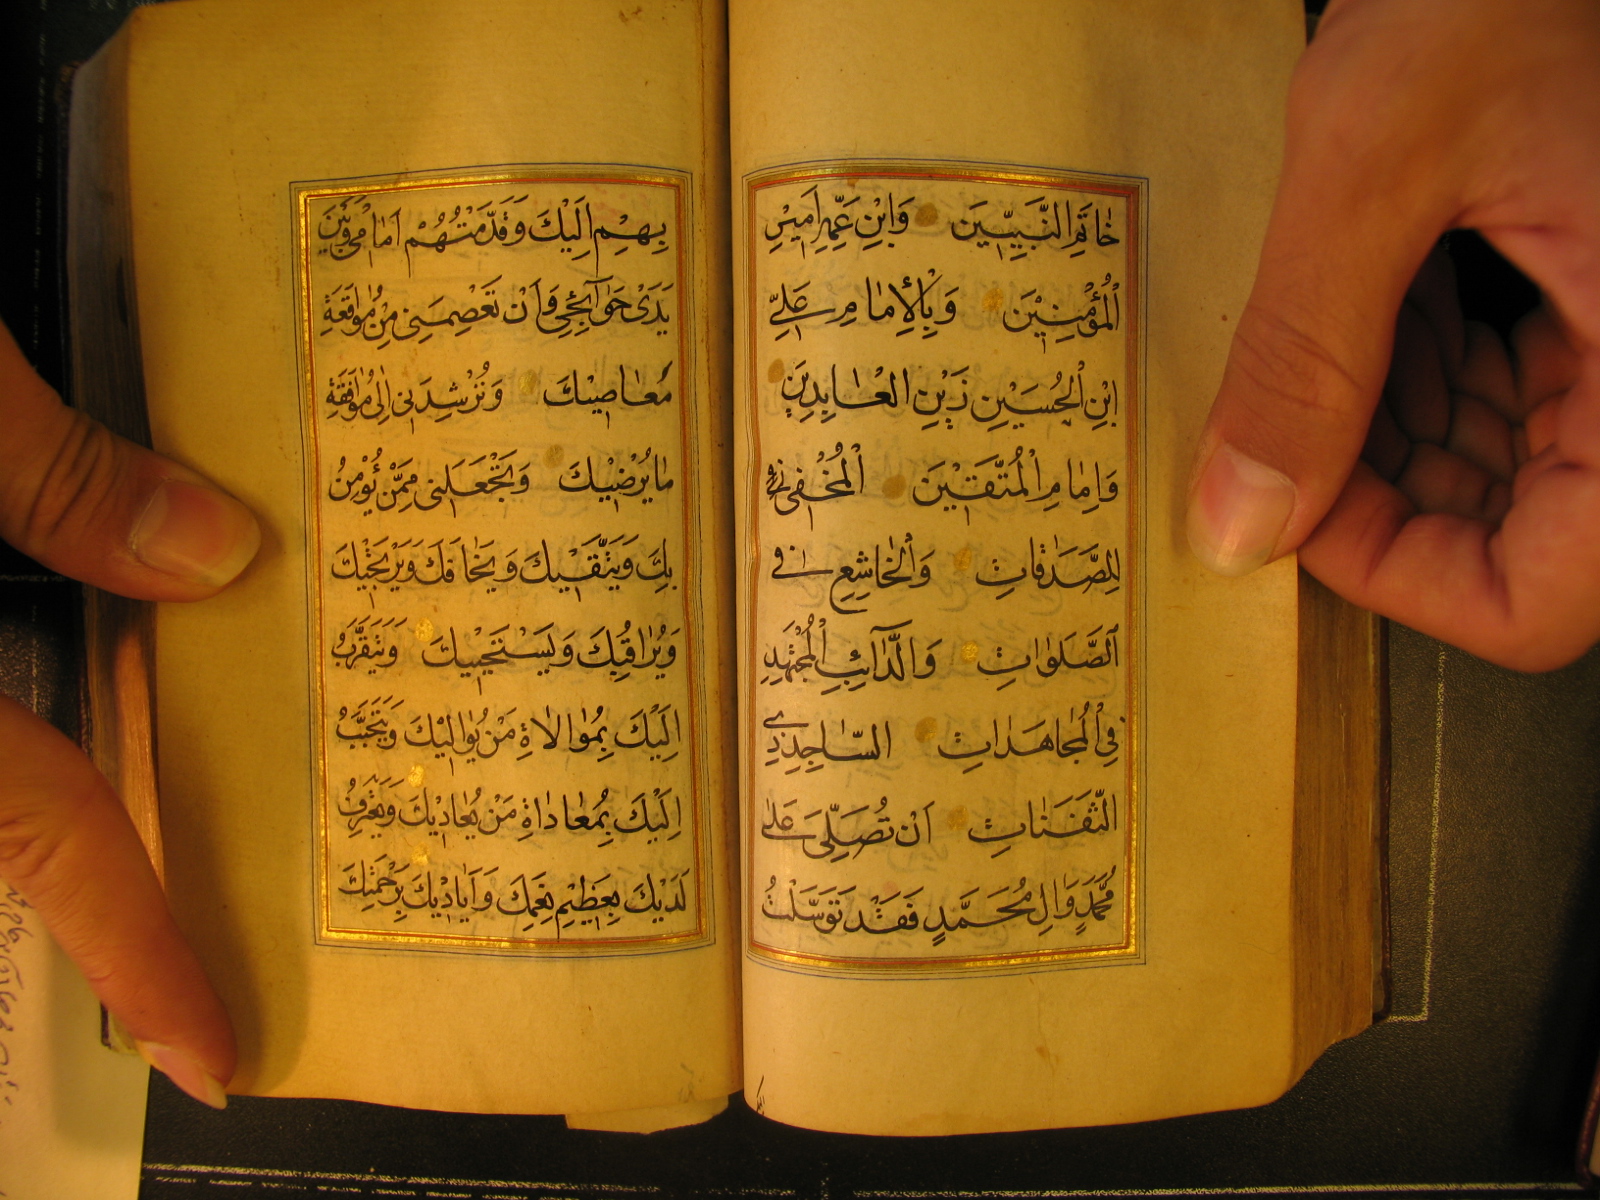 خَاتَمِ النَّبِيّينَ وَابْنِ عَمِّهِ اَمِيرِ
الْمُؤْمِنِيْنَ وَبِالْاِمَامِ عَلِيِّ
ابْنِ الْحُسَيْنِ زَيْنِ الْعَابِدِيَنِ
وَاِمَامِ الْمُتَّقَيْنَ الْمُخْفِي
لِلصَّدَقَاتِ وَالْخَاشِعِ فِي
الصَّلَوَاتِ وَالدَّآئِبِ الْمُجْتَهِدِ
فِي الْمُجَاهَدَاتِ السَّاجِدِ ذِي
الثَّفَنَاتِ اَنْ تُصَلِّىَ عَلٰى
مُحَمَّدٍ وَاٰلِ مُحَمَّدٍ فَقَدْ تَوَسَّلْتُ
بِهِمْ اِلَيْكَ وَقَدَّمْتُهُمْ اَمَامِي وَبَيْنَ
يَدَىْ حَوَآئِجِي وَاَنْ تَعْصِمَنِي مِنْ مُوَاقَعَةِ
مَعَاصِيْكَ وَتُرْشِدَنِي اِلٰى مُوَافَقَةِ
مَا يُرْضِيْكَ وَتَجْعَلَنِي مِمَّنْ يُؤْمِنُ
بِكَ وَيَتَّقَيْكَ وَيَخَافُكَ وَيَرْتَجْيْكَ
وَيُرَاقِبُكَ وَيَسْتَحْيِيكَ وَيَتَقَرَّبُ
اِلَيْكَ بِمُوَالَاةِ مَنْ يُوَالِيْكَ وَيَتَحَبَّبُ
اِلَيْكَ بِمُعَادَاةِ مَنْ يُعَادِيْكَ وَيَعْتَرِفُ
لَدَيْكَ بِعَظِيْمِ نِعَمِكَ وَاَيَادِيْكَ بِرَحْمَتِكَ